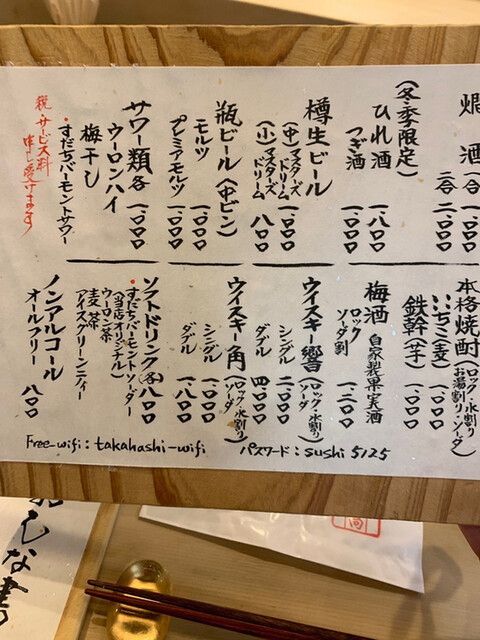 燗酒
(一合) 一、〇〇〇
二合 二、〇〇〇
(冬季限定)
ひれ酒 一、八〇〇
つぎ酒 一、〇〇〇
樽生ビール
(中)マスターズドリーム 一、〇〇〇
(小)マスターズドリーム 八〇〇
瓶ビール(中ビン)
モルツ 一、〇〇〇
プレミアモルツ 一、〇〇〇
サワー類各 一、〇〇〇
ウーロンハイ
梅干し
・すだちバーモントサワー
税 サービス料
申し受けます
本格焼酎(ロック・水割り お湯割り・ソーダ)
(麦) 一、〇〇〇
鉄幹(芋) 一、〇〇〇
梅酒 自家製果実酒
ロック
ソーダ割 一、二〇〇
ウイスキー響(ロック・水割り ソーダ)
シングル 二、〇〇〇
ダブル 四、〇〇〇
ウイスキー角(ロック・水割り ソーダ)
シングル 一、〇〇〇
ダブル 一、八〇〇
ソフトドリンク(各)八〇〇
・すだちバーモントソーダー
(当店オリジナル)
ウーロン茶
麦茶
アイスグリーンティー
ノンアルコール
オールフリー 八〇〇
Free-wifi: takahashi-wifi パスワード: sushi5125
おしな書
高